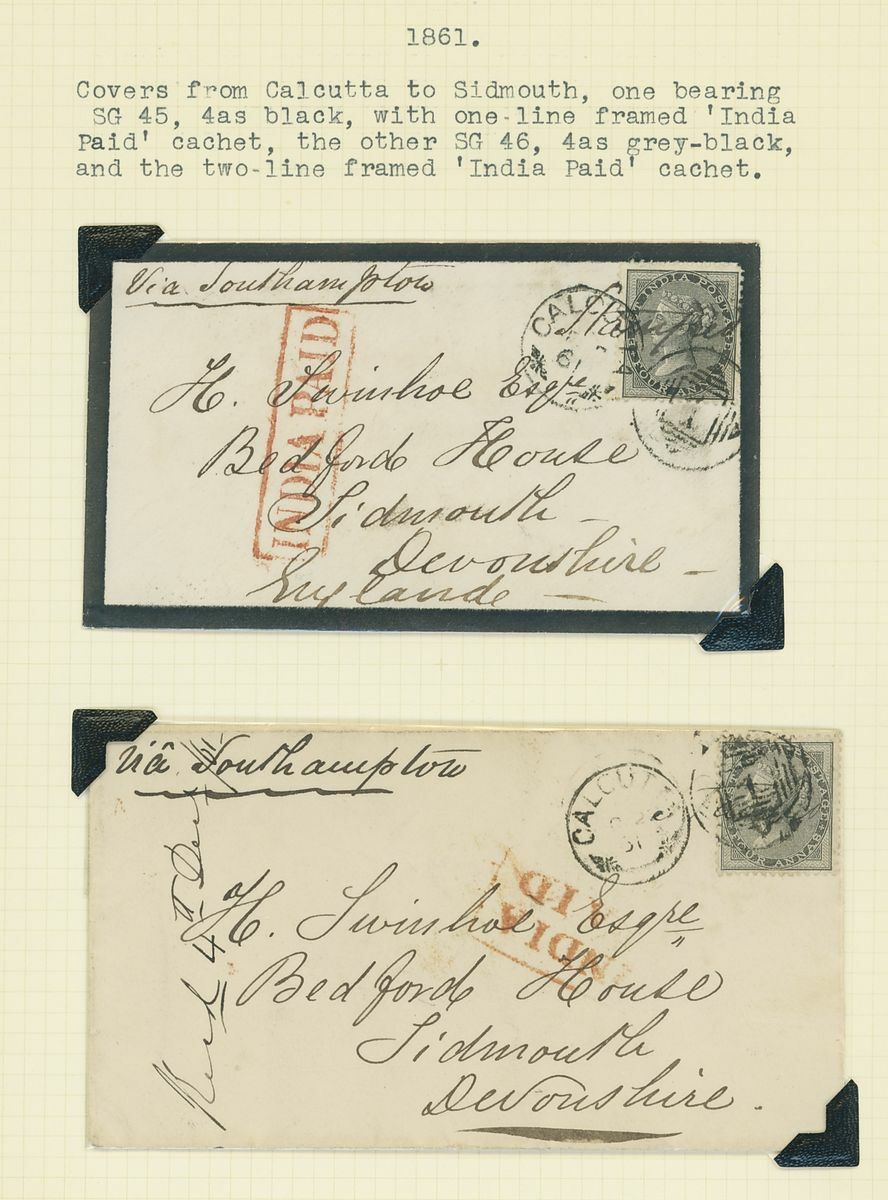 1861.
Covers from Calcutta to Sidmouth, one bearing
SG 45, 4as black, with one-line framed 'India
Paid' cachet, the other SG 46, 4as grey-black,
and the two-line framed 'India Paid' cachet.
Via Southampton
INDIA PAID
CALCUTTA
61
INDIA POSTAGE
FOUR ANNAS
Stamped
1
H. Swinhoe Esqre
Bedford House
Sidmouth
Devonshire
England
Via Southampton
CALCUTTA
61
1
FOUR ANNAS
INDIA
PAID
Recd 4th Decr
H. Swinhoe Esqre
Bedford House
Sidmouth
Devonshire.